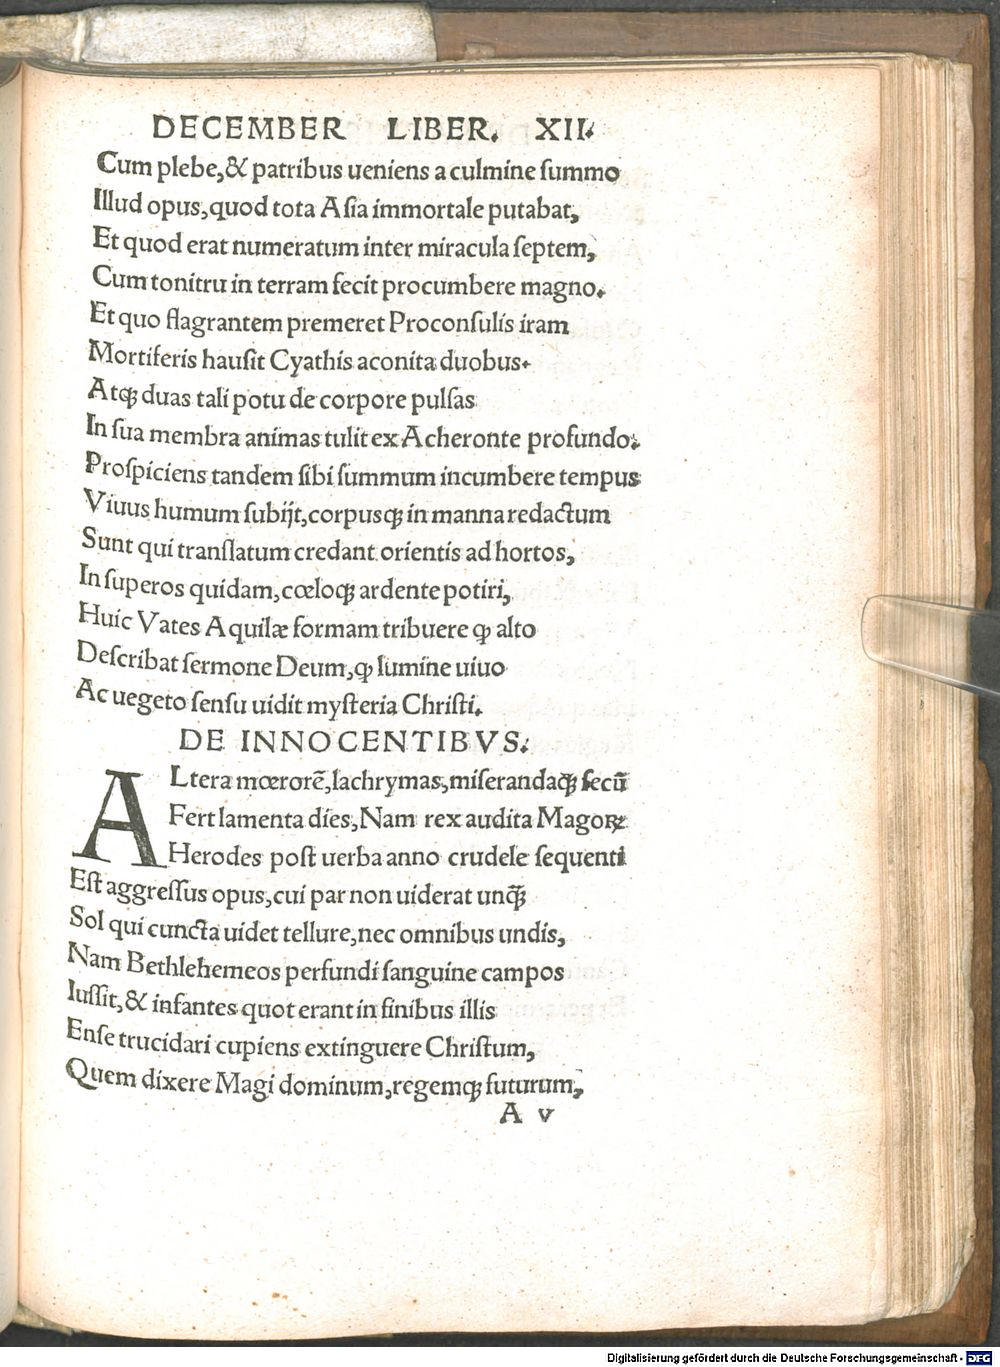 DECEMBER LIBER. XII.
Cum plebe,& patribus ueniens a culmine ſummo
Illud opus,quod tota Aſia immortale putabat,
Et quod erat numeratum inter miracula ſeptem,
Cum tonitru in terram fecit procumbere magno.
Et quo flagrantem premeret Proconſulis iram
Mortiferis hauſit Cyathis aconita duobus.
Atqꝫ duas tali potu de corpore pulſas
In ſua membra animas tulit ex Acheronte profundo.
Proſpiciens tandem ſibi ſummum incumbere tempus
Viuus humum ſubijt,corpusqꝫ in manna redactum
Sunt qui tranſlatum credant orientis ad hortos,
In ſuperos quidam,cœloqꝫ ardente potiri,
Huic Vates Aquilæ formam tribuere ꝙ alto
Deſcribat ſermone Deum,ꝙ lumine uiuo
Ac uegeto ſenſu uidit myſteria Chriſti.
DE INNOCENTIBVS.
ALtera mœrorẽ,lachrymas,miſerandaqꝫ ſecũ
Fert lamenta dies,Nam rex audita Magoꝝ
Herodes poſt uerba anno crudele ſequenti
Eſt aggreſſus opus,cui par non uiderat unq̃ꝫ
Sol qui cuncta uidet tellure,nec omnibus undis,
Nam Bethlehemeos perfundi ſanguine campos
Iuſſit,& infantes quot erant in finibus illis
Enſe trucidari cupiens extinguere Chriſtum,
Quem dixere Magi dominum,regemqꝫ futurum,
A v
Digitalisierung gefördert durch die Deutsche Forschungsgemeinschaft - DFG